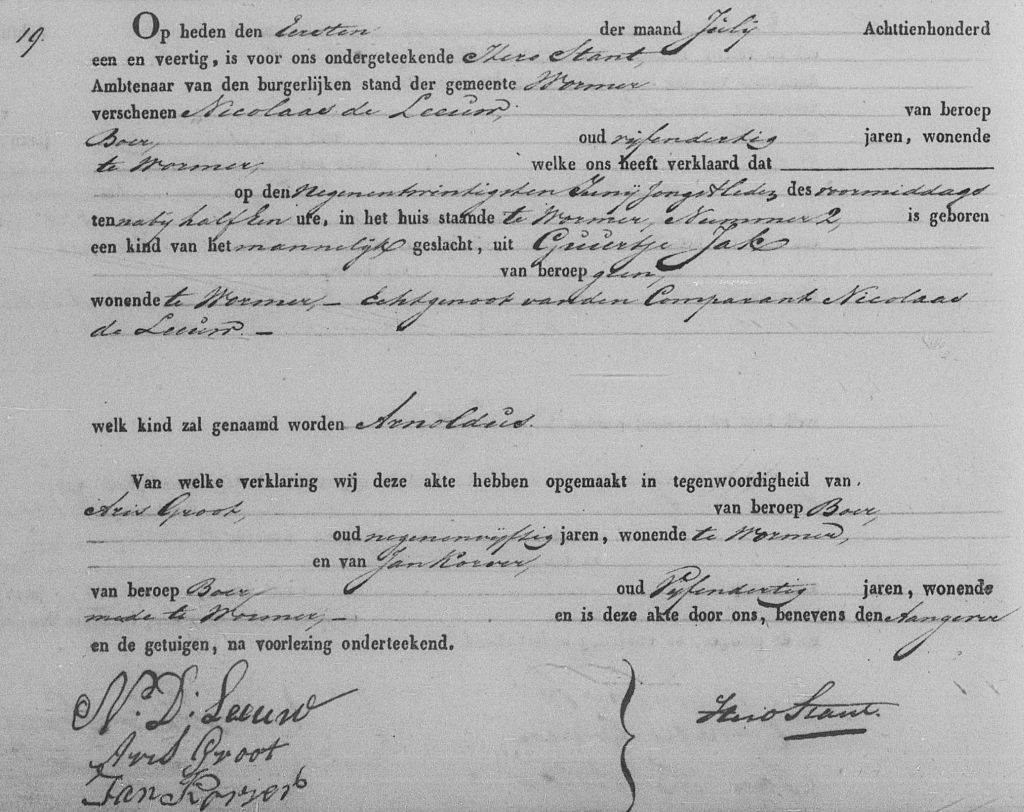 19.
Op heden den Eersten der maand Julij Achttienhonderd
een en veertig, is voor ons ondergeteekende Hero Stant,
Ambtenaar van den burgerlijken stand der gemeente Wormer
verschenen Nicolaas de Leeuw, van beroep
Boer, oud vijfendertig jaren, wonende
te Wormer, welke ons heeft verklaard dat
op den negenentwintigsten Junij jongstleden, des voormiddags
ten naby half een ure, in het huis staande te Wormer, Nummer 2, is geboren
een kind van het mannelijk geslacht, uit Guurtje Jak
van beroep geen,
wonende te Wormer, – Echtgenoot van den Comparant Nicolaas
de Leeuw. –
welk kind zal genaamd worden Arnoldus.
Van welke verklaring wij deze akte hebben opgemaakt in tegenwoordigheid van
Aris Groot, van beroep Boer,
oud negenenvijftig jaren, wonende te Wormer,
en van Jan Korver,
van beroep Boer, oud Vijfendertig jaren, wonende
mede te Wormer, – en is deze akte door ons, benevens den Aangever
en de getuigen, na voorlezing onderteekend.
N. D. Leeuw
Hero Stant.
Aris Groot
Jan Korver